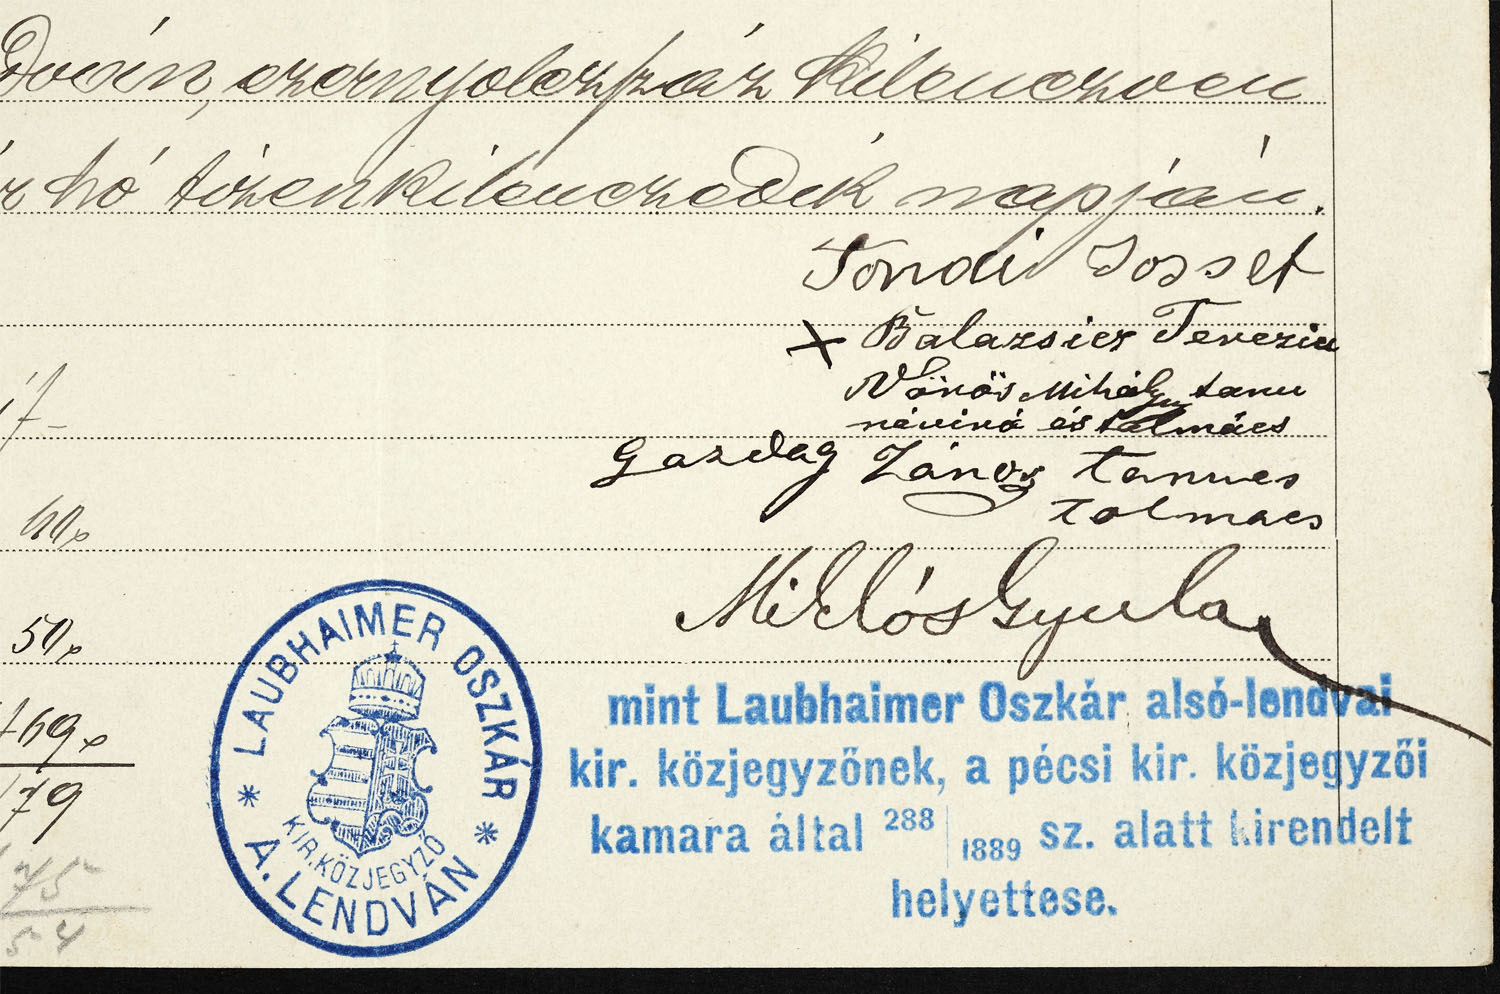 ezernyolczszáz kilenczven
hó tizenkilenczedik napján.
Tondi Jossef
+ Balazsicz Terezia
Vörös Mihály tanu
névíró és tolmács
Gazdag János tanues
tolmacs
60
50
Miklós Gyula
169
179
75
54
LAUBHAIMER OSZKÁR
KIR. KÖZJEGYZŐ
* A. LENDVÁN *
mint Laubhaimer Oszkár alsó-lendvai
kir. közjegyzőnek, a pécsi kir. közjegyzői
kamara által 288 | 1889 sz. alatt kirendelt
helyettese.